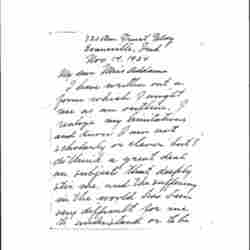 Evansville, Ind
Nov 14, 1924
My dear Miss Addams
I have written out a
form which I might
use as an outline. I
realize my limitations
and know I am not
scholarly or clever but I
a great deal
on subjects that deeply
stir me, and the suffering
in the world has been
very difficult for me
to understand or to be